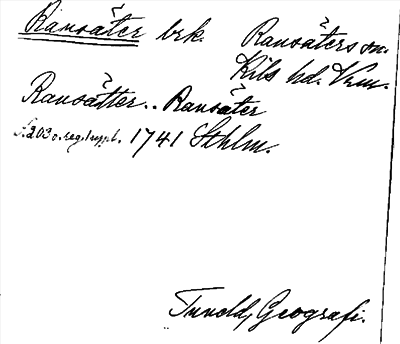 Ransäter brk.
Ransäters sn.
Kils hd. Vrm.
Ransätter.. Ransäter
s. 203 o. reg. l. uppl. 1741 Sthlm.
Tuneld, Geografi.